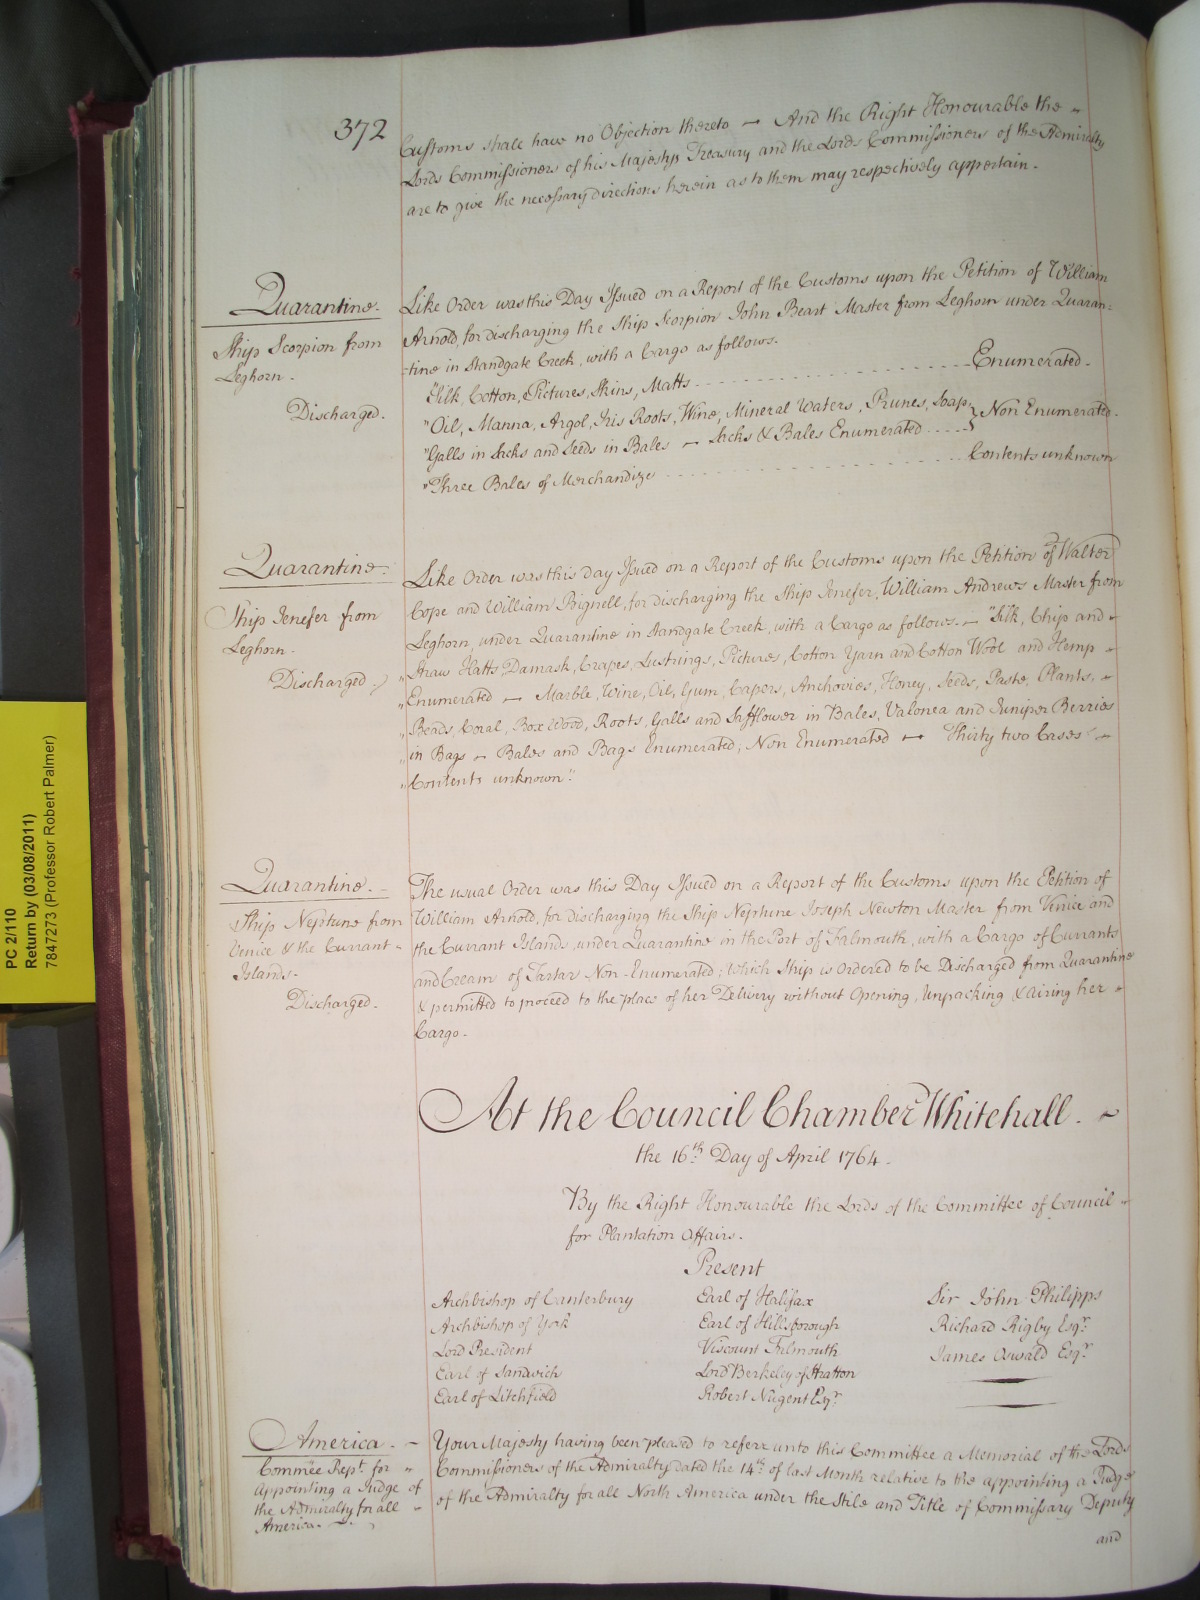 372
Customs shall have no Objection thereto — And the Right Honourable the
Lords Commissioners of his Majestys Treasury and the Lords Commissioners of the Admiralty
are to give the necessary directions herein as to them may respectively appertain.
Quarantine.
Ship Scorpion from
Leghorn.
Discharged.
Like Order was this Day Issued on a Report of the Customs upon the Petition of William
Arnold, for discharging the Ship Scorpion John Beart Master from Leghorn under Quaran-
-tine in Standgate Creek, with a Cargo as follows.
"Silk, Cotton, Pictures, Skins, Matts - - - - - - - - - - Enumerated.
"Oil, Manna, Argol, Iris Roots, Wine, Mineral Waters, Prunes, Soap,
"Galls in Sacks and Seeds in Bales — Sacks & Bales Enumerated - - - - } Non Enumerated.
"Three Bales of Merchandize - - - - - - - - - - Contents unknown
Quarantine.
Ship Jenefer from
Leghorn.
Discharged.
Like Order was this day Issued on a Report of the Customs upon the Petition of Walter
Cope and William Bignell, for discharging the Ship Jenefer, William Andrews Master from
Leghorn, under Quarantine in Standgate Creek, with a Cargo as follows. — "Silk, Chip and
"Straw Hatts, Damask, Crapes, Lustrings, Pictures, Cotton Yarn and Cotton Wool and Hemp
"Enumerated — Marble, Wine, Oil, Gum, Capers, Anchovies, Honey, Seeds, Paste, Plants,
"Beads, Coral, Box Wood, Roots, Galls and Safflower in Bales, Valonea and Juniper Berries
"in Bags — Bales and Bags Enumerated; Non Enumerated — Thirty two Cases
"Contents unknown."
Quarantine.
Ship Neptune from
Venice & the Currant
Islands.
Discharged.
The usual Order was this Day Issued on a Report of the Customs upon the Petition of
William Arnold, for discharging the Ship Neptune Joseph Newton Master from Venice and
the Currant Islands, under Quarantine in the Port of Falmouth, with a Cargo of Currants
and Cream of Tartar Non-Enumerated; Which Ship is Ordered to be Discharged from Quarantine
& permitted to proceed to the place of her Delivery without Opening, Unpacking & Airing her
Cargo.
At the Council Chamber Whitehall.
the 16th Day of April 1764.
By the Right Honourable the Lords of the Committee of Council
for Plantation Affairs.
Present
Archbishop of Canterbury Earl of Halifax Sir John Philipps
Archbishop of York Earl of Hillsborough Richard Rigby Esqr.
Lord President Viscount Falmouth James Oswald Esqr.
Earl of Sandwich Lord Berkeley of Stratton
Earl of Litchfield Robert Nugent Esqr.
America.
Commee Rept. for
appointing a Judge of
the Admiralty for all
America.
Your Majesty having been pleased to referr unto this Committee a Memorial of the Lords
Commissioners of the Admiralty dated the 14th of last Month relative to the appointing a Judge
of the Admiralty for all North America under the Stile and Title of Commissary Deputy
and
PC 2/110
Return by (03/08/2011)
7847273 (Professor Robert Palmer)